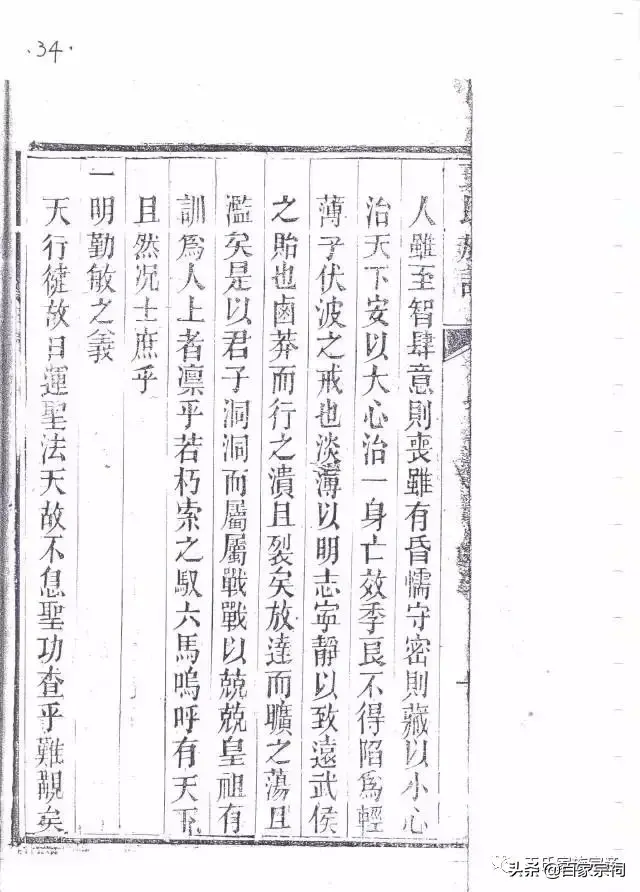 ·34·
族譜
人雖至智肆意則喪雖有昏懦守密則藏以小心
治天下安以大心治一身亡效季良不得陷爲輕
薄子伏波之戒也淡薄以明志寧靜以致遠武侯
之貽也鹵莽而行之潰且裂矣放達而曠之蕩且
濫矣是以君子洞洞而屬屬戰戰以兢兢皇祖有
訓爲人上者凛乎若朽索之馭六馬嗚呼有天下
且然况士庶乎
一明勤敏之義
天行健故日運聖法天故不息聖功查乎難覯矣
头条@百家宗祠